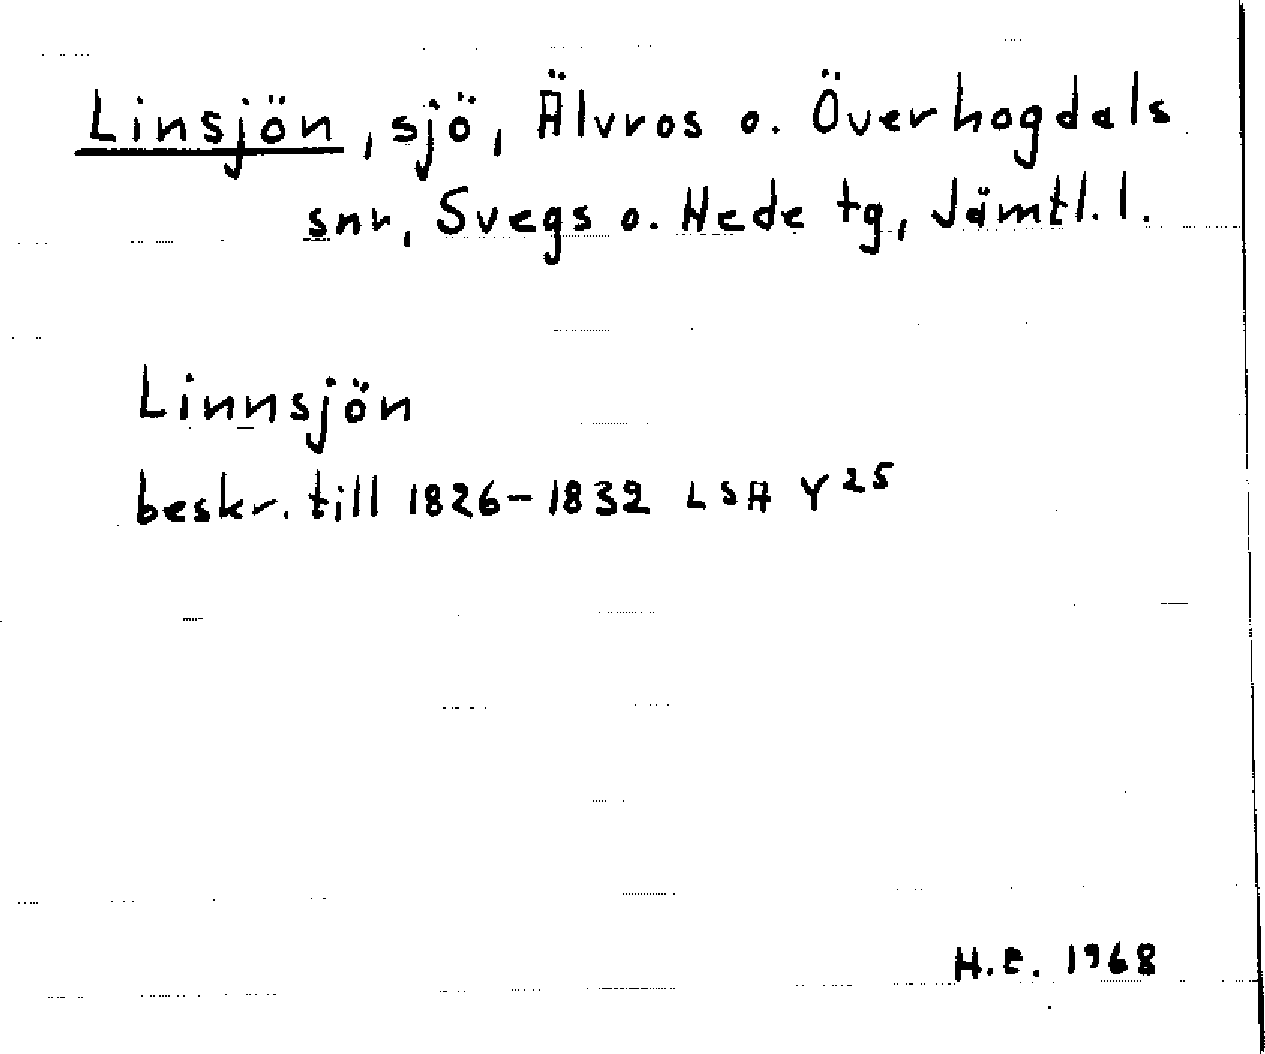 Linsjön, sjö, Älvros o. Överhogdals
snr, Svegs o. Hede tg, Jämtl. l.
Linnsjön
beskr. till 1826-1832 LSA Y25
H.C. 1968